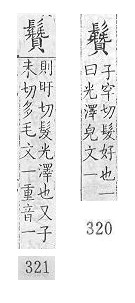 䰖
子罕切髮好也一
曰光澤皃文一
320
䰖
則旰切髮光澤也又子
末切多毛文一重音一
321